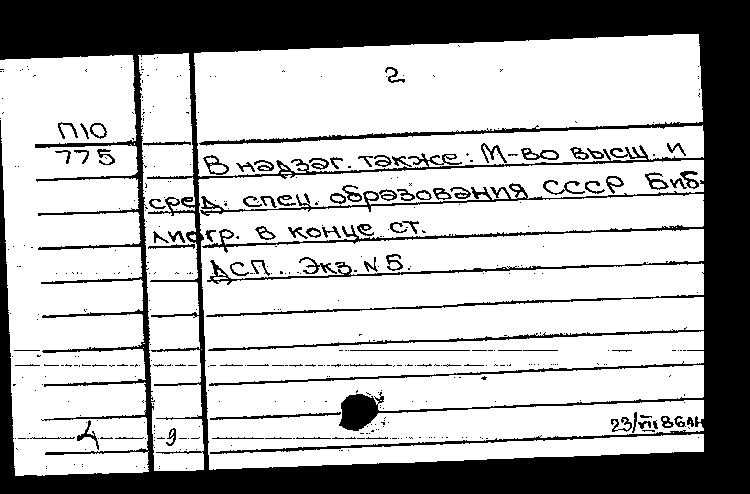 2
П10
775
В надзаг. также: М-во высш. и
сред. спец. образования СССР Биб-
лиогр. в конце ст.
ДСП. Экз. N 5.
9
23/VII 86